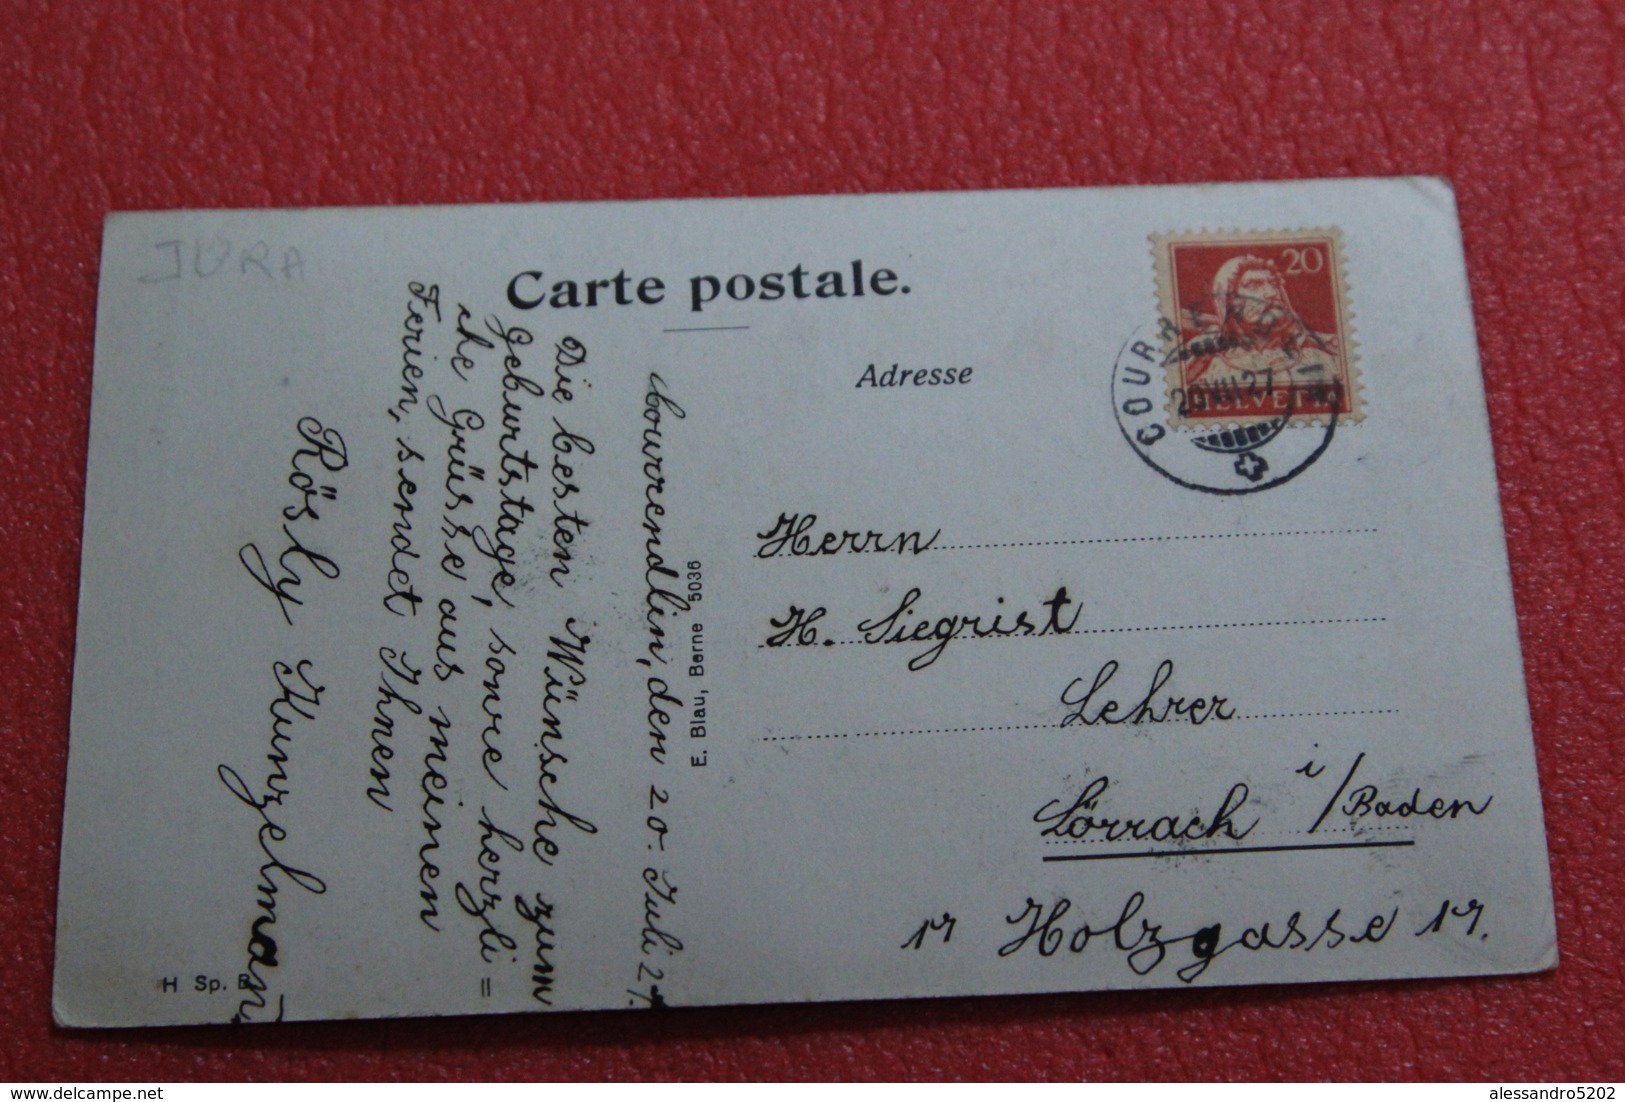 JURA
Carte postale.
Adresse
20
HELVETIA
COURRENDLIN
20.VII.27
Courrendlin, den 20. Juli 27.
Die besten Wünsche zum
Geburtstage, sowie herzli=
che Grüsse aus meinen
Ferien, sendet Ihnen
Rösly Kunzelmann.
E. Blau, Berne 5036
H Sp. B.
Herrn
H. Siegrist
Lehrer
Lörrach i/Baden
17 Holzgasse 17.
alessandro5202
www.delcampe.net